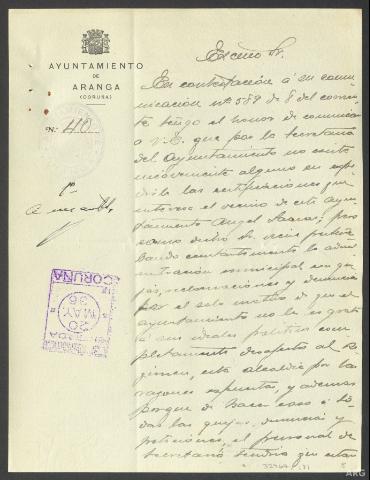 AYUNTAMIENTO
DE
ARANGA
(CORUÑA)
Nº 410
Excmo Sr.
En contestación á su comu-
nicación nº 589 de 8 del corrien-
te tengo el honor de comunicar
a V.E. que por la Secretaria
del Ayuntamiento no existe
inconveniente alguno en expe-
dirle las certificaciones que
interesa el vecino de este Ayun-
tamiento Angel pero
como dicho Sr. viene pertur-
bando constantemente la admi-
nistración municipal con que-
jas, reclamaciones y denuncias
por el solo motivo de que el
ayuntamiento no le es grato
á sus ideales politicos com-
pletamente desafecto al Re-
gimen, esta alcaldia por las
razones expuestas, y ademas
porque de hacer caso á to-
das las quejas, denuncias y
peticiones, el personal de
Secretaria tendria que estar
CORUÑA
20
MAY
36
ARG